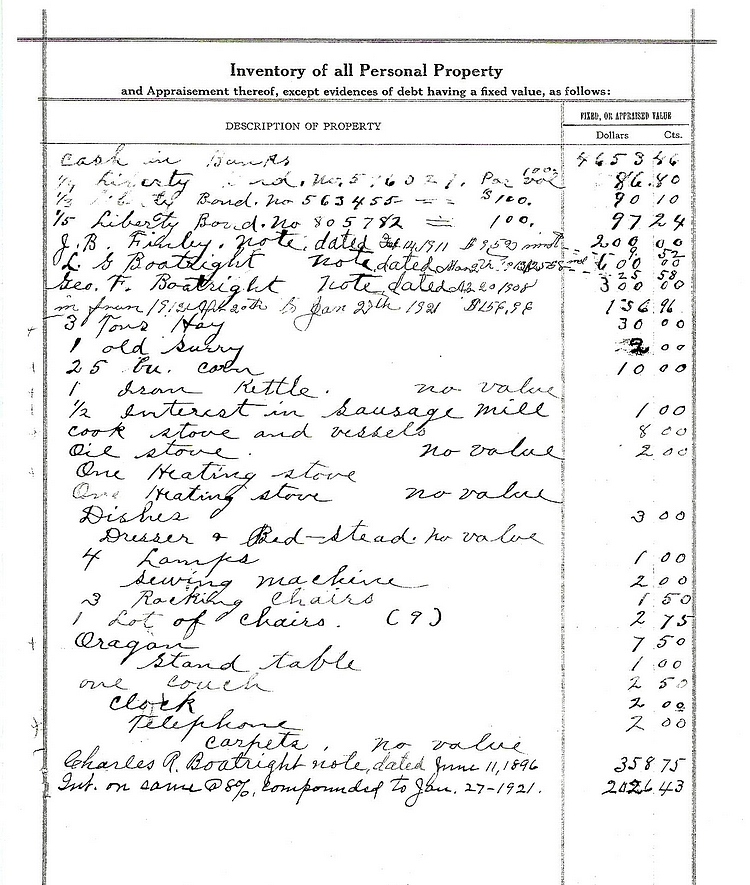 Inventory of all Personal Property
and Appraisement thereof, except evidences of debt having a fixed value, as follows:
DESCRIPTION OF PROPERTY
FIXED, OR APPRAISED VALUE
Dollars Cts.
Cash in Banks 4653 46
Liberty No. Par 86.80
Bond. No 563455 $100. 90 10
1/5 Liberty Bond. No 805782 = 100. 97 24
J. B. Finley. note. dated 1911 200 00
L. G Boatright Note dated 600 00
Geo. F. Boatright Note, dated 1908 300 00
int from 1912 20th to Jan 27th 1921 $156.96 156 96
3 Tons Hay 30 00
1 old Surry 2 00
25 bu. corn 10 00
1 Iron Kettle. no value
1/2 Interest in Sausage mill 1 00
cook stove and vessels 8 00
Oil stove. no value 2 00
One Heating stove
One Heating stove no value
Dishes 3 00
Dresser & Bed-stead. no value
4 Lamps 1 00
Sewing machine 2 00
3 Rocking Chairs 1 50
1 Lot of chairs. (9) 2 75
Oragan 7 50
Stand table 1 00
one couch 2 50
Clock 2 00
Telephone 2 00
carpets. no value
Charles R. Boatright note, dated June 11, 1896 358 75
Int. on same @ 8%, compounded to Jan. 27-1921. 2026.43